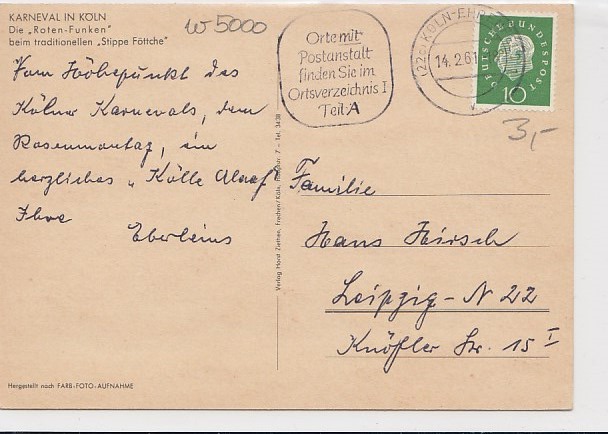 KARNEVAL IN KÖLN
Die „Roten-Funken"
beim traditionellen „Stippe Föttche"
W 5000
Orte mit
Postanstalt
finden Sie im
Ortsverzeichnis I
Teil A
(22c) KÖLN-EHR
14.2.61
DEUTSCHE BUNDESPOST
10
3,-
Vom Höhepunkt des
Kölner Karnevals, dem
Rosenmontag, ein
herzliches „Kölle Alaaf
Ihre
Eberleins
Verlag Horst Ziethen, Frechen/Köln, 7 - Tel. 3438
Familie
Hans Hirsch
Leipzig - N 22
Knöfler Str. 15 I
Hergestellt nach FARB-FOTO-AUFNAHME